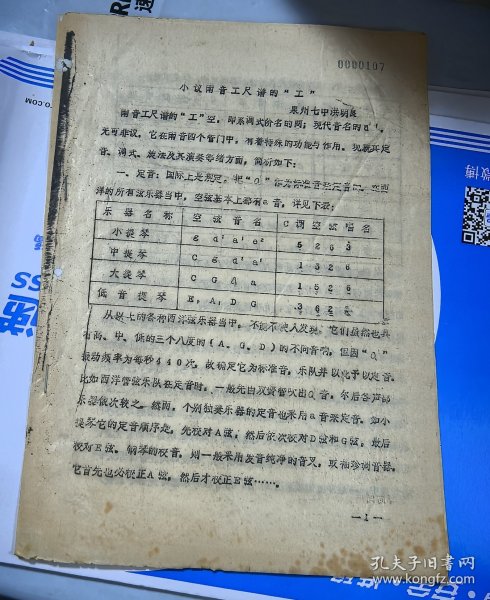 0000107
小议南音工尺谱的“工”
泉州七中洪明良
南音工尺谱的“工”空，即系调式价名的网；现代音名的a¹，
无可非议。它在南音四个管门中，有着特殊的功能与作用。现就其定
音、调式、旋法及其演奏等诸方面，简析如下：
一、定音：国际上是规定，把“a”作为标准音来定音的。在西
洋的所有弦乐器当中，空弦基本上都有a音，详见下表：
乐器名称 空弦音名 C调空弦唱名
小提琴 g d¹ a¹ e² 5 2 6 3
中提琴 c g d¹ a¹ 1 5 2 6
大提琴 C G d a 1 5 2 6
低音提琴 E, A, D G 3 6 2 5
从以上的各种西洋弦乐器当中，不能不使人发现，它们虽然也具
有高、中、低的三个八度的（A、G、D）的不同音响，但因“a¹”
振动频率为每秒440次，故确定它为标准音，乐队并以此予以定音。
比如西洋管弦乐队在定音时，一般先由双簧管吹出a¹音，尔后各声部
乐器依次较之。然而，个别独奏乐器的定音也采用a音来定音。如小
提琴它的定音顺序是，先校对A弦，然后依次校对D弦和G弦，最后
校对E弦。钢琴的校音，则一般采用发音纯净的音叉，或袖珍调音器，
它首先也必校正A弦，然后才校正E弦……。
—1—
微博
孔夫子旧书网
www.kongfz.com